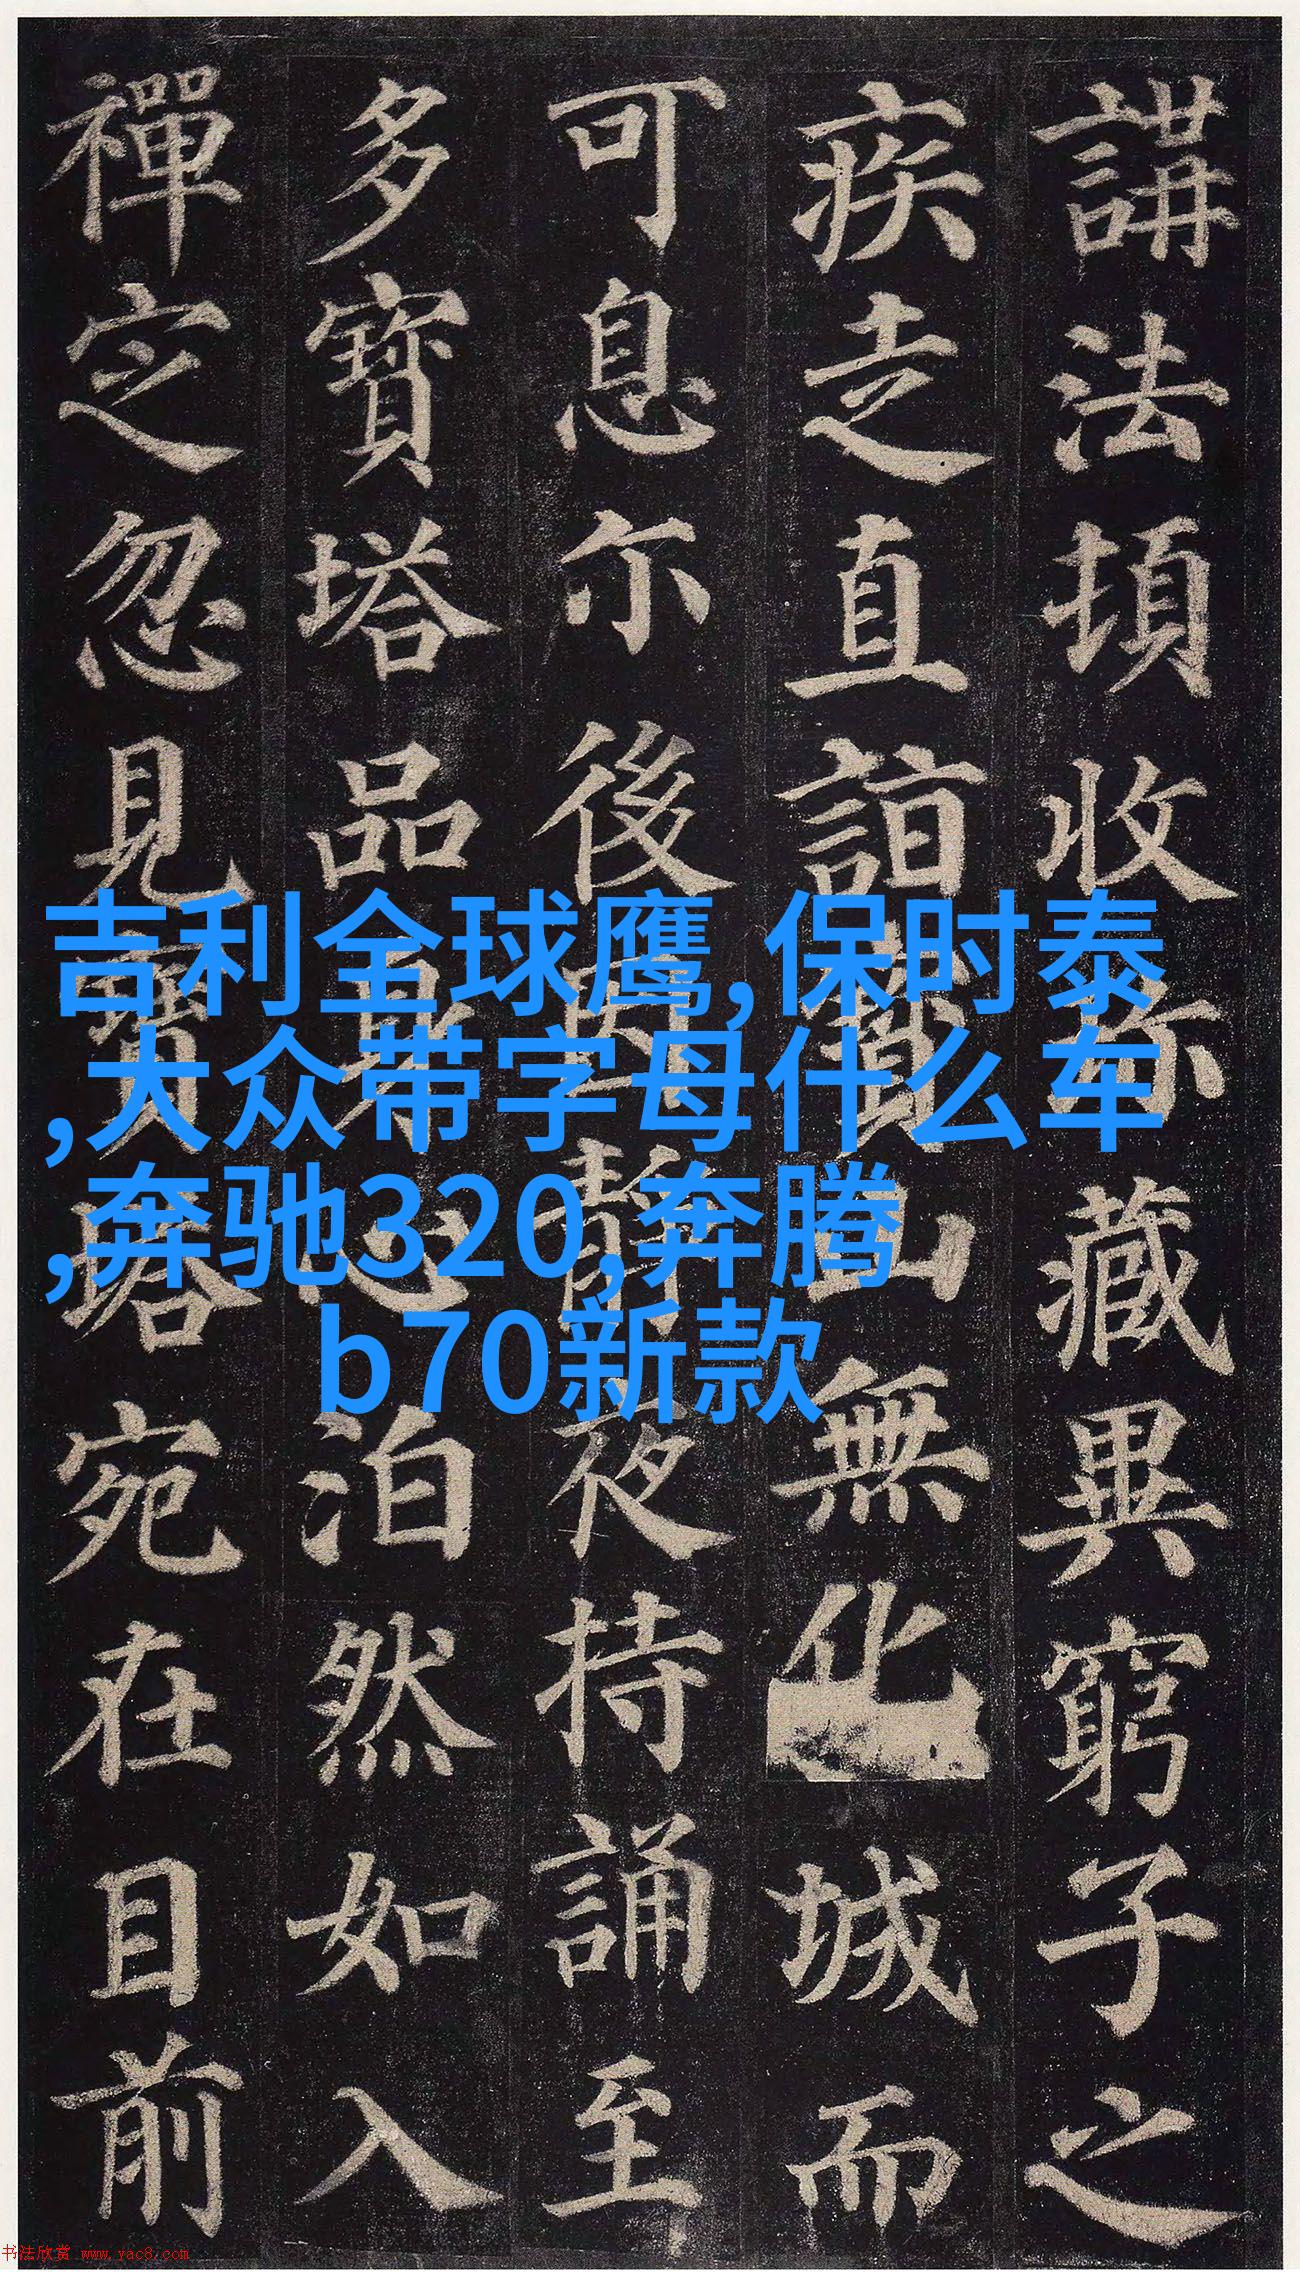 講法頓收珎藏異窮子之
疾走直詣寶山無化城而
可息尒後因靜夜持誦至
多寶塔品身心泊然如入
禪定忽見寶塔宛在目前
吉利全球鹰,保时泰
,大众带字母什么车
,奔驰320,奔腾
b70新款
书法欣赏 www.yac8.com